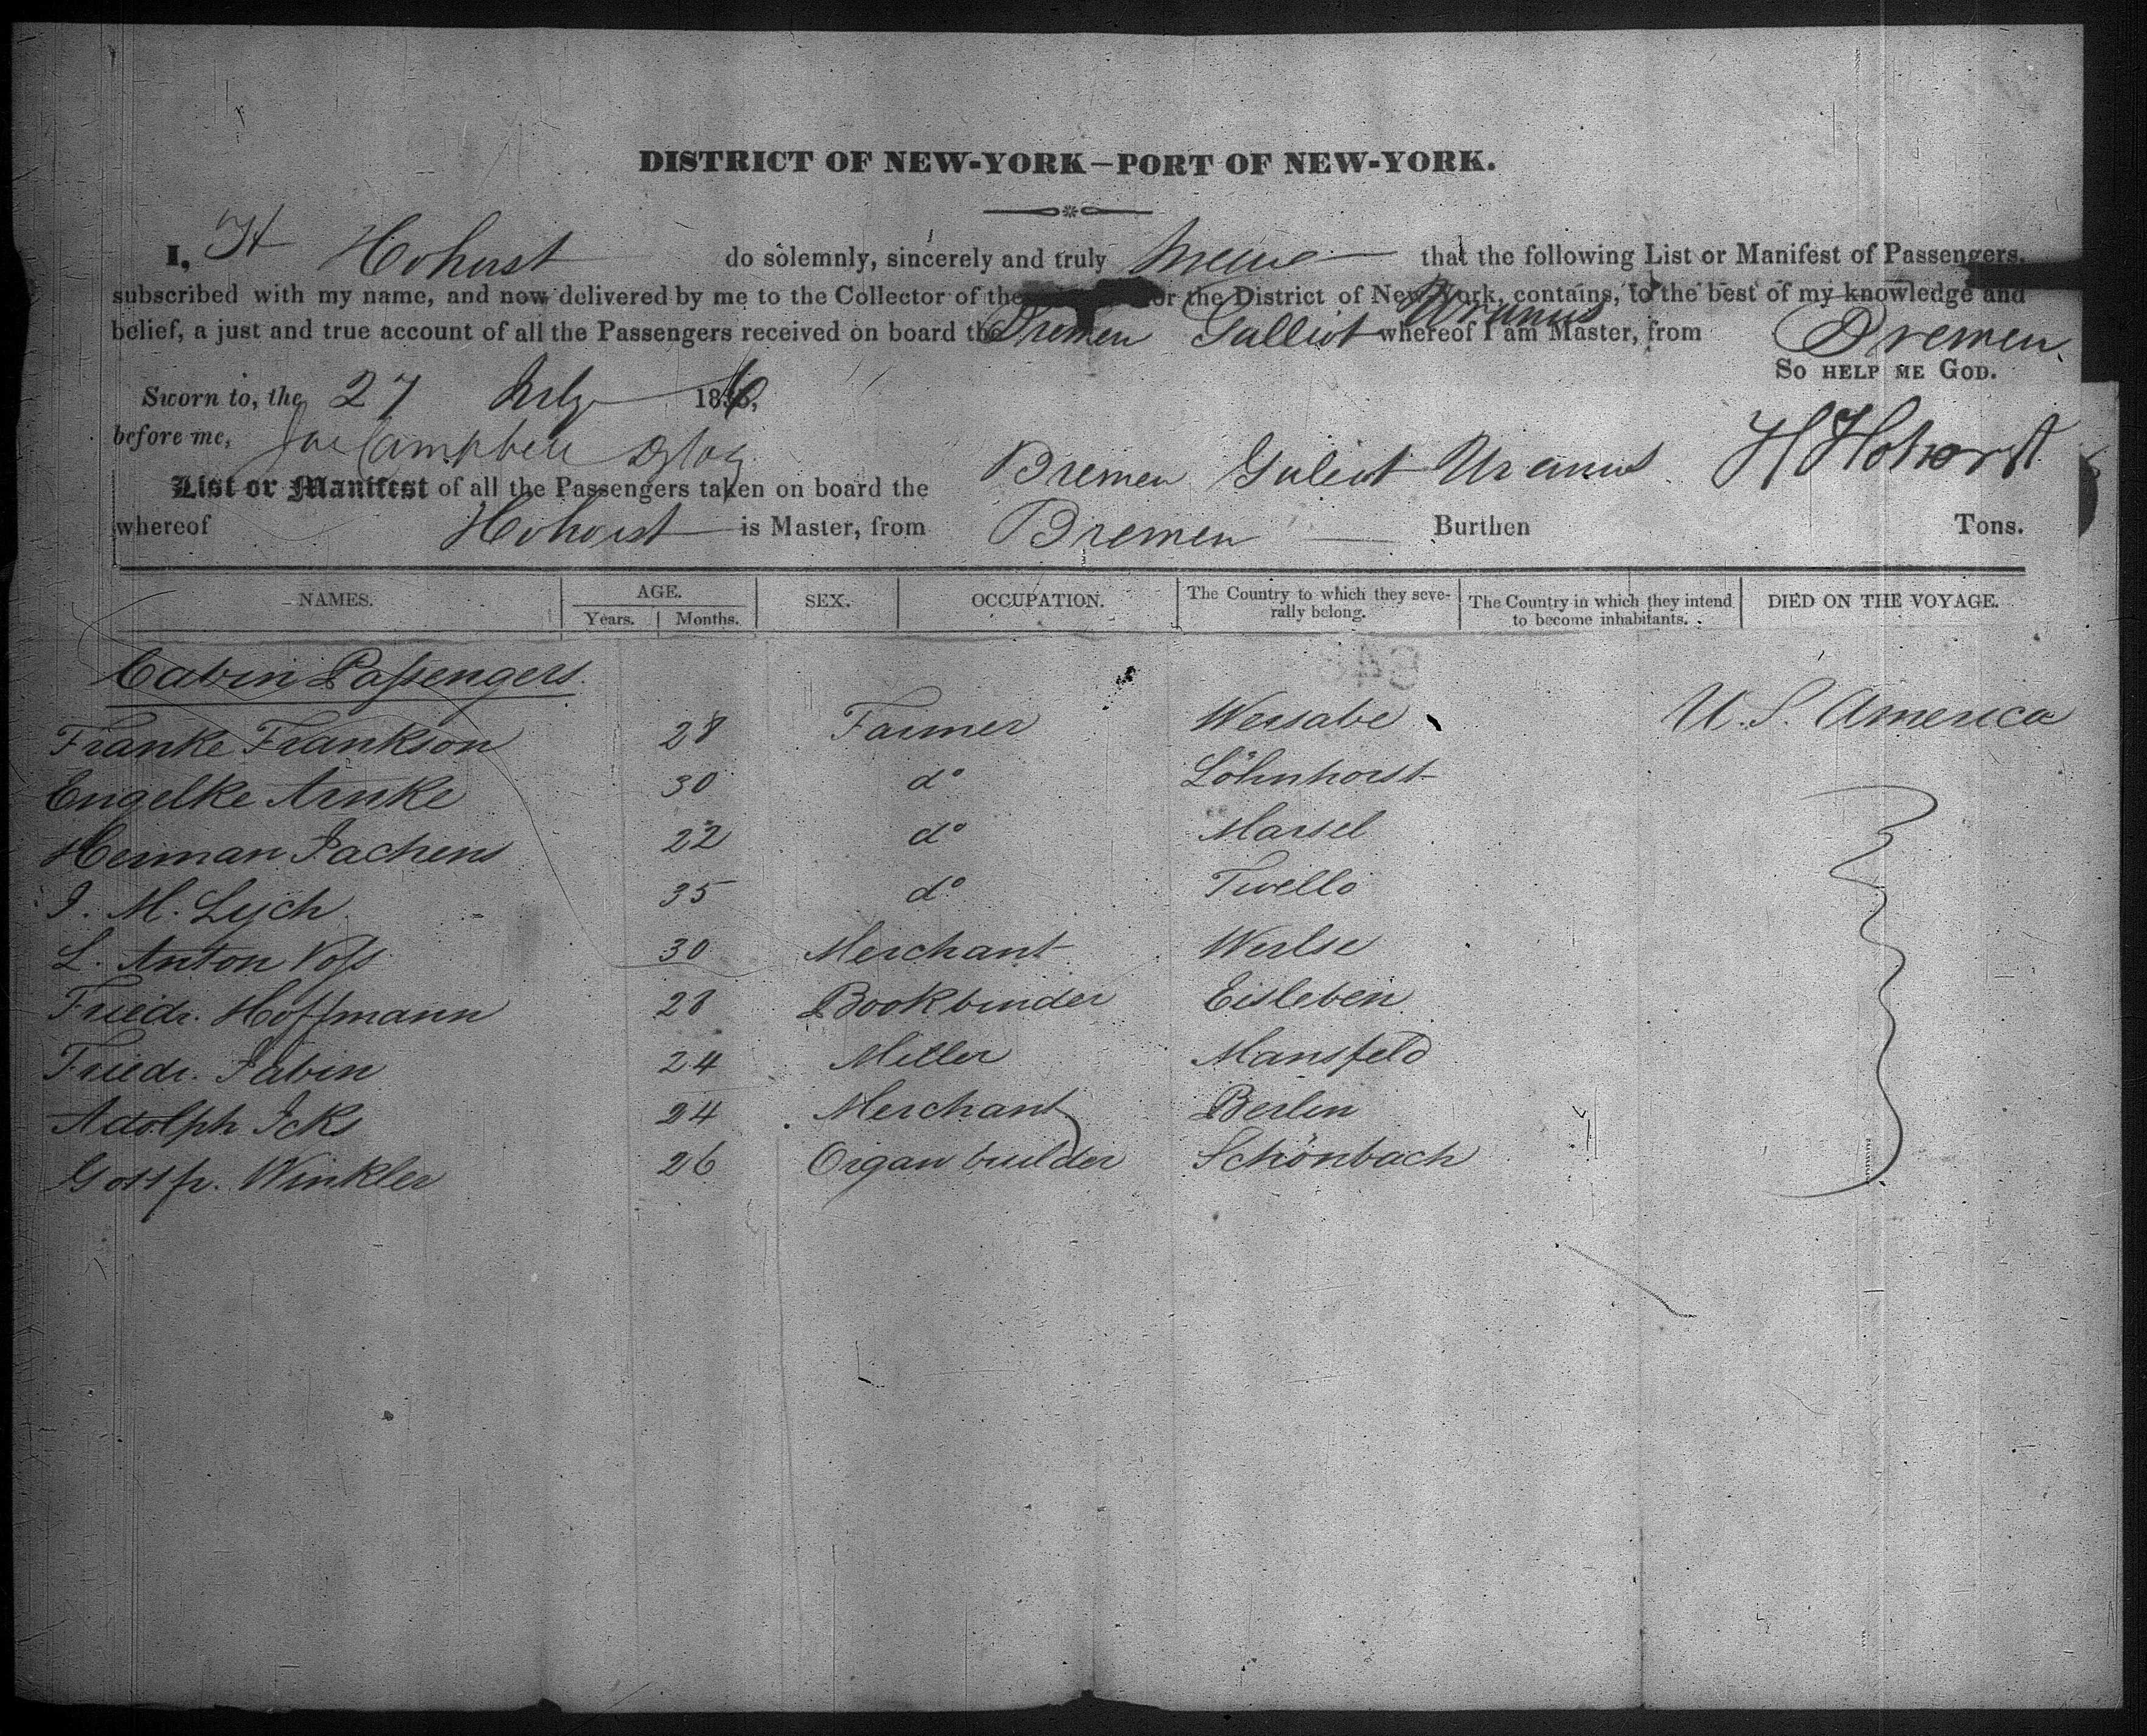 DISTRICT OF NEW-YORK—PORT OF NEW-YORK.
I, H Hohorst do solemnly, sincerely and truly swear that the following List or Manifest of Passengers,
subscribed with my name, and now delivered by me to the Collector of the or the District of New York, contains, to the best of my knowledge and
belief, a just and true account of all the Passengers received on board the Bremen Galliot Uranus whereof I am Master, from Bremen.
So HELP ME GOD.
Sworn to, the 27 July 18
before me, Campbell H Hohorst
List or Manifest of all the Passengers taken on board the Bremen Galiot Uranus
whereof Hohorst is Master, from Bremen Burthen Tons.
NAMES. AGE. Years. Months. SEX. OCCUPATION. The Country to which they severally belong. The Country in which they intend to become inhabitants. DIED ON THE VOYAGE.
Cabin Passengers.
Franke Frankson 28 Farmer Wersabe U. S. America
Engelke Arnke 30 do Löhnhorst
Herman Jachens 22 do Marsel
J. M. Lych 35 do Twello
L. Anton Voss 30 Merchant Werlse
Friedr. Hoffmann 28 Bookbinder Eisleben
Friedr. Jabin 24 Miller Mansfeld
Adolph Icks 24 Merchant Berlin
Gottfr. Winkler 26 Organ builder Schönbach